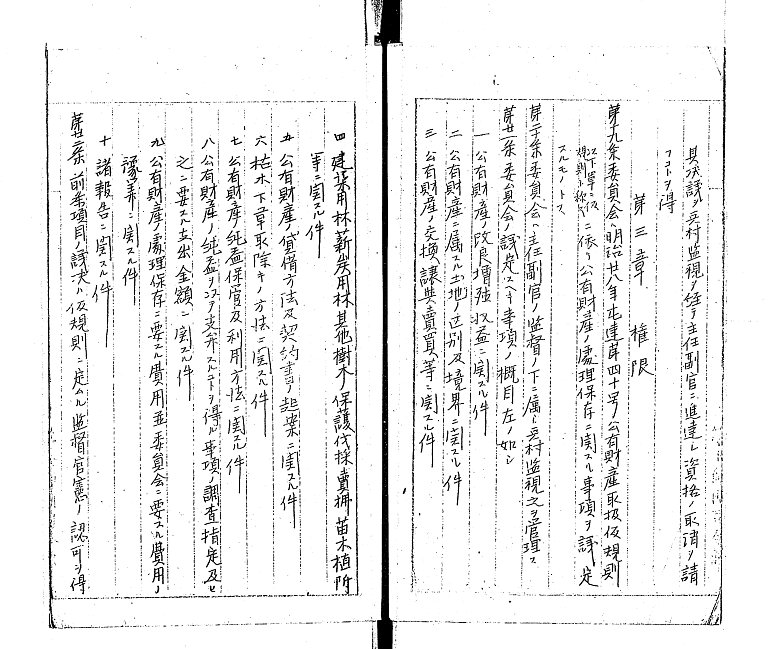 其決議ヲ兵村監視ヲ経テ主任副官ニ進達シ資格ノ取消ヲ請
フコトヲ得
第三章 権限
第十九条委員会ハ明治廿八年屯達第四十号公有財産取扱仮規則
以下単ニ仮
規則ト称ス
ニ依リ公有財産ノ處理保存ニ関スル事項ヲ議定
スルモノトス
第二十条委員会ハ主任副官ノ監督ノ下ニ属シ兵村監視之ヲ管理ス
第廿一条委員会ノ議定スヘキ事項ノ概目左ノ如シ
一 公有財産ノ改良増殖収益ニ関スル件
二 公有財産ニ属スル土地ノ区別及境界ニ関スル件
三 公有財産ノ交換譲與賣買等ニ関スル件
四 建築用林薪炭用林其他樹木ノ保護伐採賣拂苗木植附
等ニ関スル件
五 公有財産ノ貸借方法及契約書ノ起案ニ関スル件
六 枯木下草取除キノ方法ニ関スル件
七 公有財産ノ純益保管及利用方法ニ関スル件
八 公有財産ノ純益ヲ以テ支弁スルコトヲ得ル事項ノ調査指定及ヒ
之ニ要スル支出金額ニ関スル件
九 公有財産ノ處理保存ニ要スル費用並委員会ニ要スル費用ノ
豫算ニ関スル件
十 諸報告ニ関スル件
第廿二条 前条項目ノ議決ハ仮規則ニ定ムル監督官憲ノ認可ヲ得